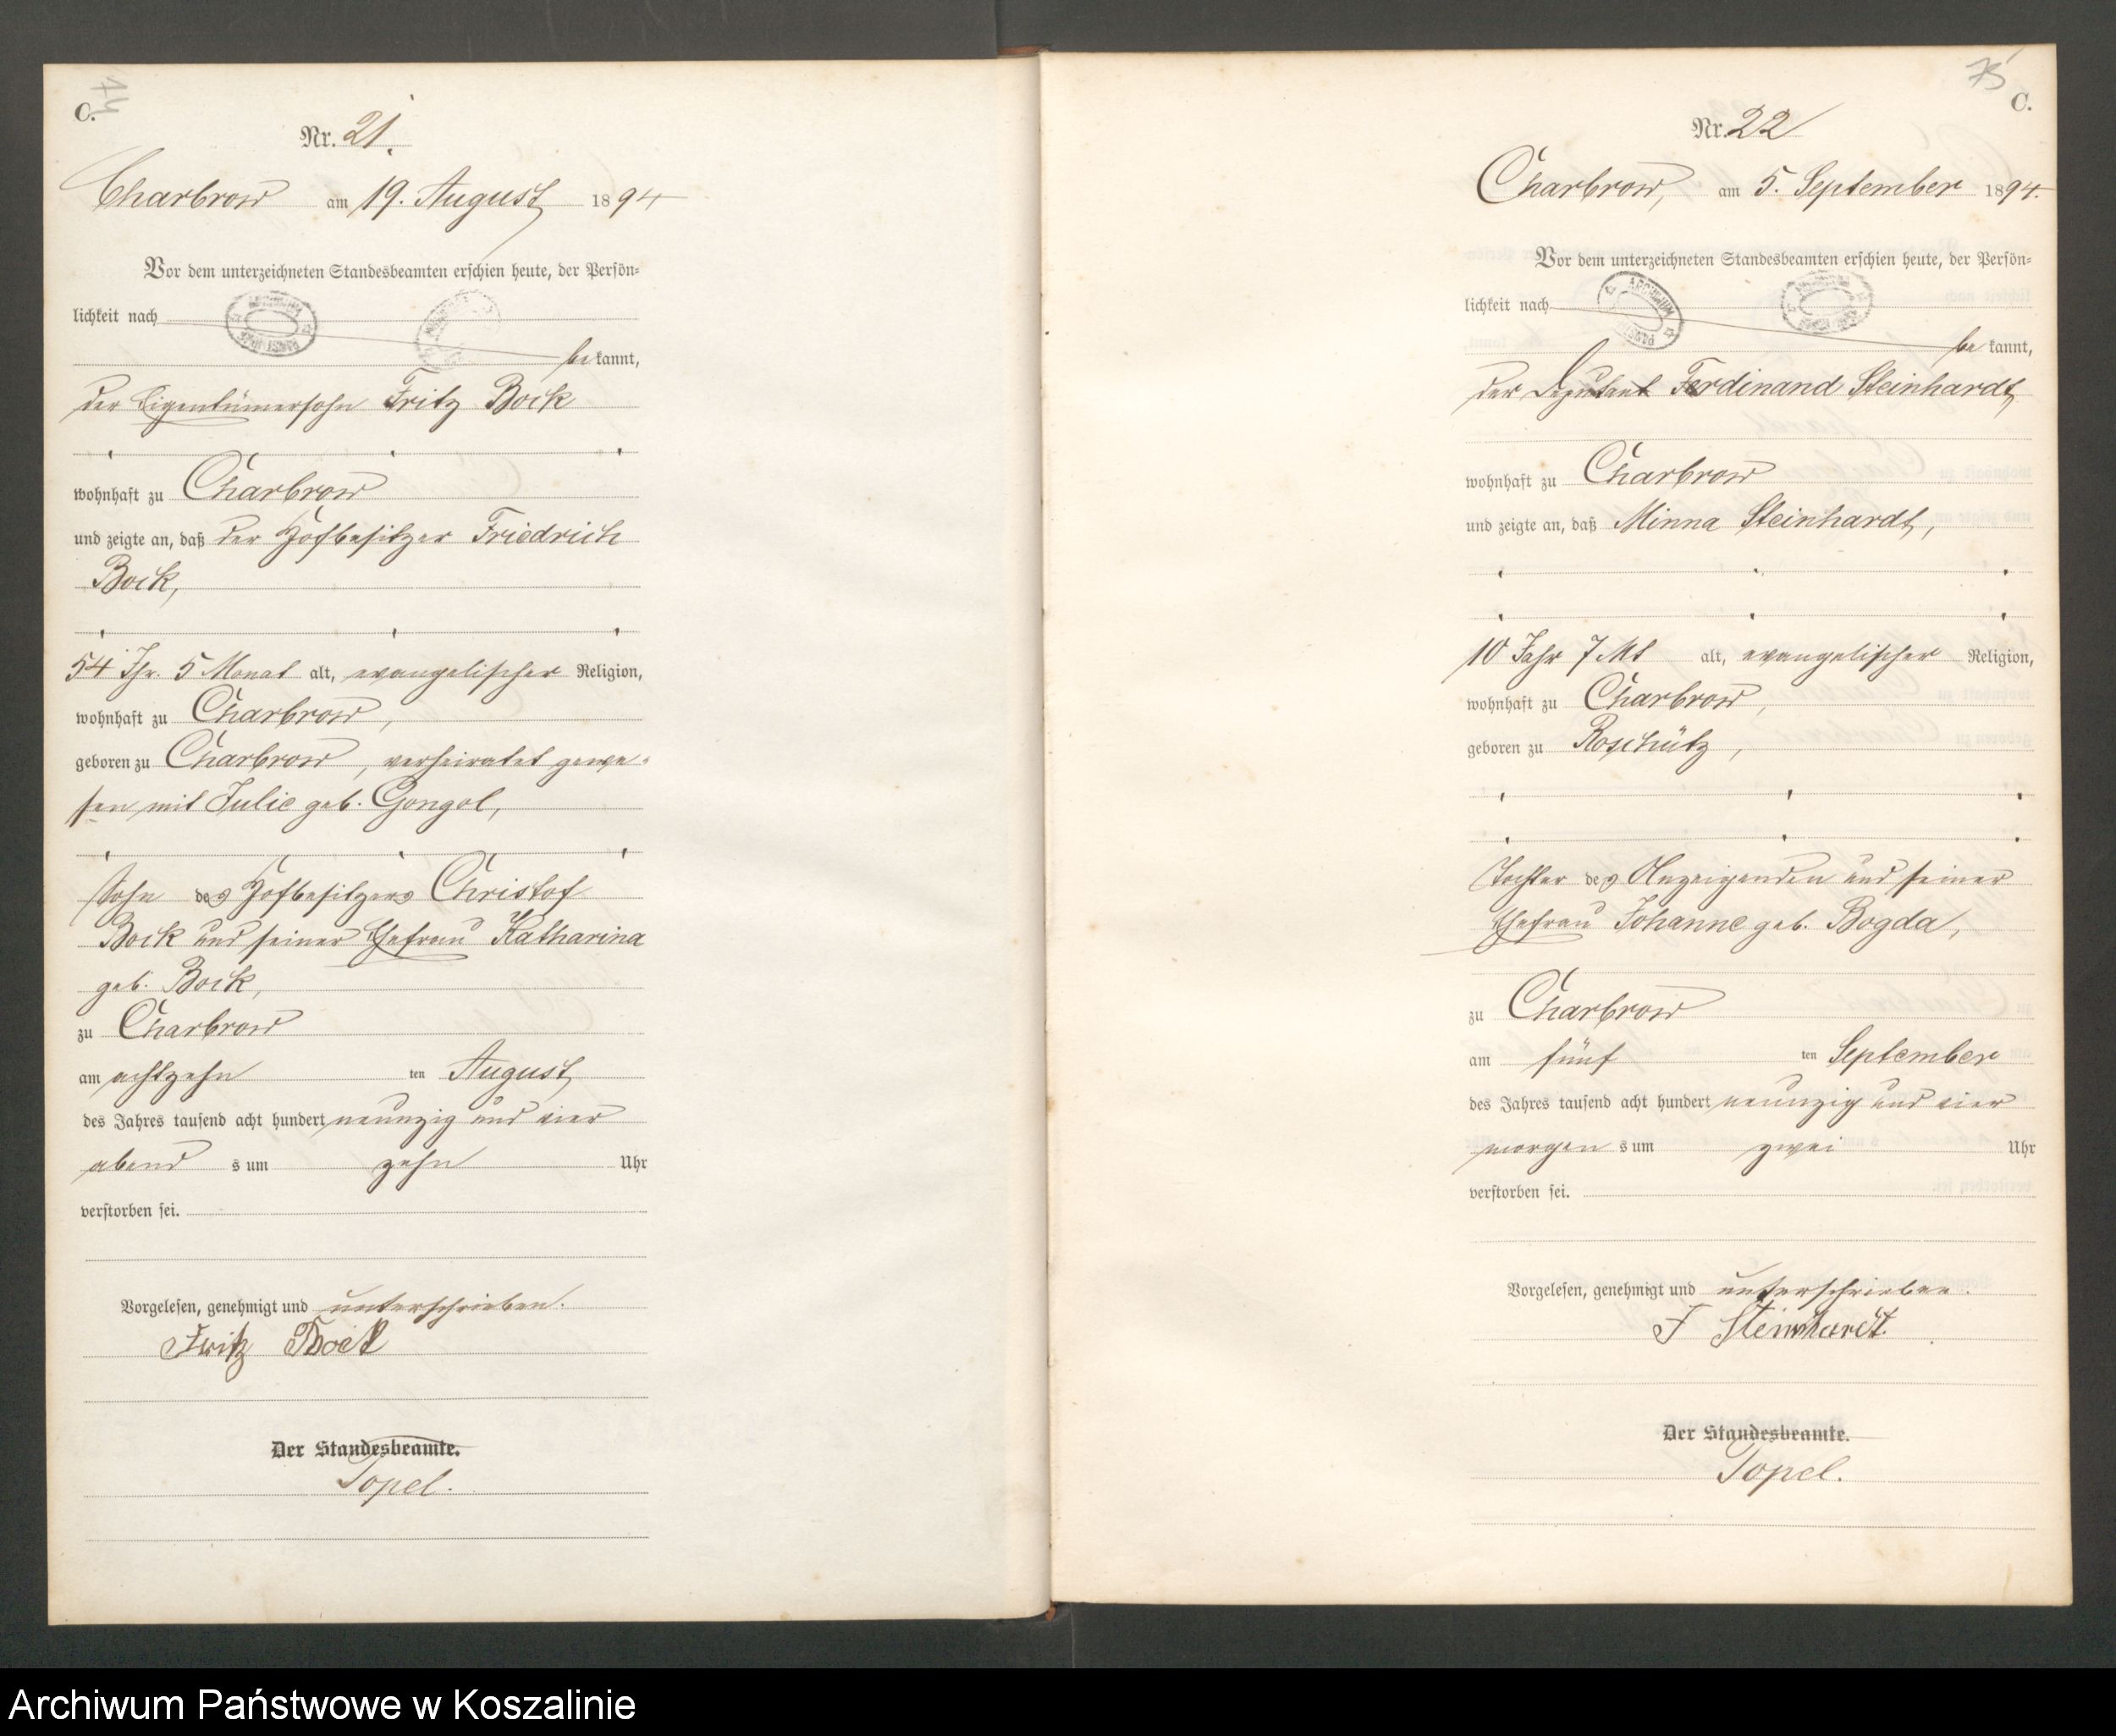 C.
74
Nr. 21.
Charbrow am 19. August 1894
Vor dem unterzeichneten Standesbeamten erschien heute, der Persön-
lichkeit nach
be kannt,
der Eigentümersohn Fritz Bock
wohnhaft zu Charbrow
und zeigte an, daß der Hofbesitzer Friedrich
Bock,
54 Jhr. 5 Monat alt, evangelischer Religion,
wohnhaft zu Charbrow,
geboren zu Charbrow, verheiratet gewe-
sen mit Julie geb. Gongol,
Sohn des Hofbesitzers Christof
Bock und seiner Ehefrau Katharina
geb. Bock,
zu Charbrow
am achtzehn ten August
des Jahres tausend acht hundert neunzig und vier
abend s um zehn Uhr
verstorben sei.
Vorgelesen, genehmigt und unterschrieben.
Fritz Bock
Der Standesbeamte.
Topel.
75
C.
Nr. 22
Charbrow, am 5. September 1894.
Vor dem unterzeichneten Standesbeamten erschien heute, der Persön-
lichkeit nach
be kannt,
der Deputant Ferdinand Steinhardt
wohnhaft zu Charbrow
und zeigte an, daß Minna Steinhardt,
10 Jahr 7 Mt alt, evangelischer Religion,
wohnhaft zu Charbrow,
geboren zu Roschütz,
Tochter des Anzeigenden und seiner
Ehefrau Johanne geb. Bogda,
zu Charbrow
am fünf ten September
des Jahres tausend acht hundert neunzig und vier
morgen s um zwei Uhr
verstorben sei.
Vorgelesen, genehmigt und unterschrieben.
F Steinhardt.
Der Standesbeamte.
Topel.
Archiwum Państwowe w Koszalinie